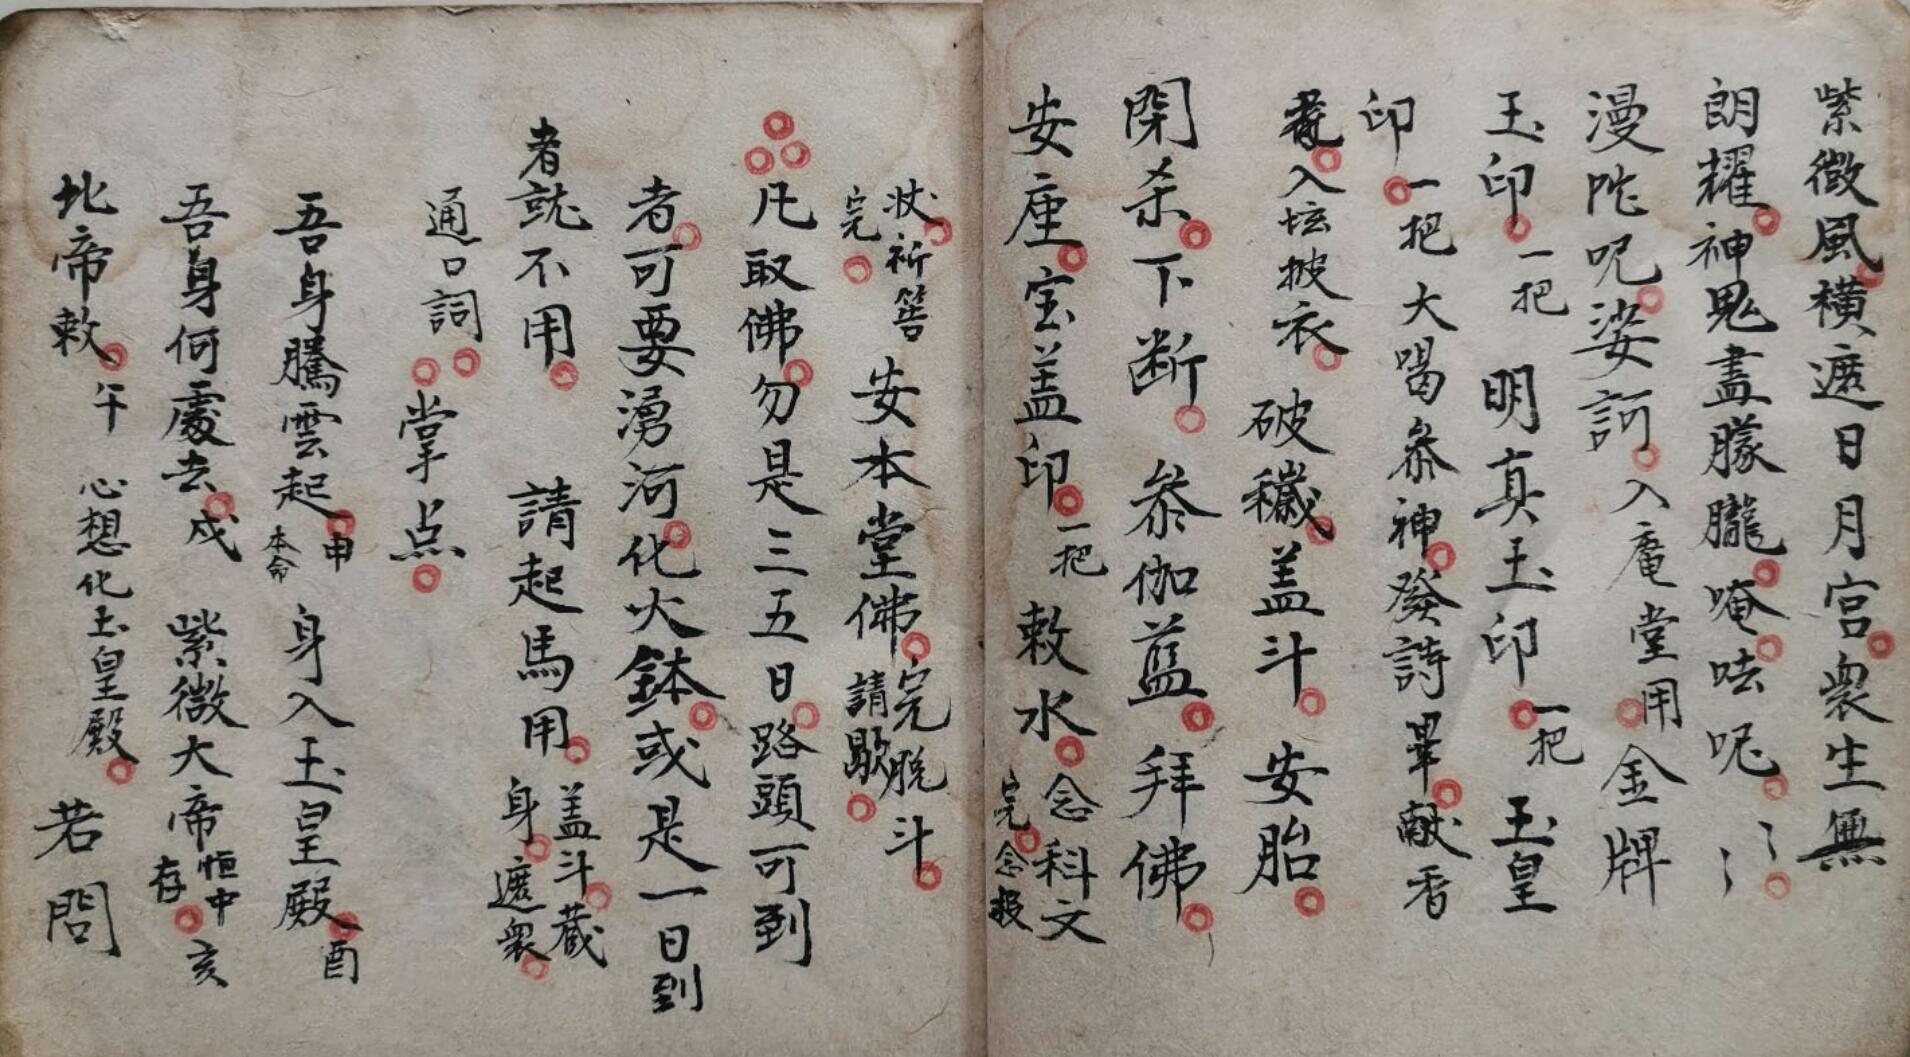 紫微風橫遮日月宮衆生無
朗耀神鬼盡朦朧唵呿呢
漫陀呢娑訶入庵堂用金牌
玉印一把明真玉印一把玉皇
印一把大喝叅神發詩畢献香
入坛披衣破穢盖斗安胎
閉杀下断叅伽藍拜佛
安座宝盖印一把敕水念科文
完念投
状祈筶
完安本堂佛完脱斗
請歇
凡取佛勿是三五日路頭可到
者可要湧河化火鉢或是一日到
者就不用請起馬用盖斗藏
身遮衆
通口詞掌点
吾身騰雲起申本命身入玉皇殿酉
吾身何處去戍紫微大帝恒中
存亥
北帝敕午心想化玉皇殿若問